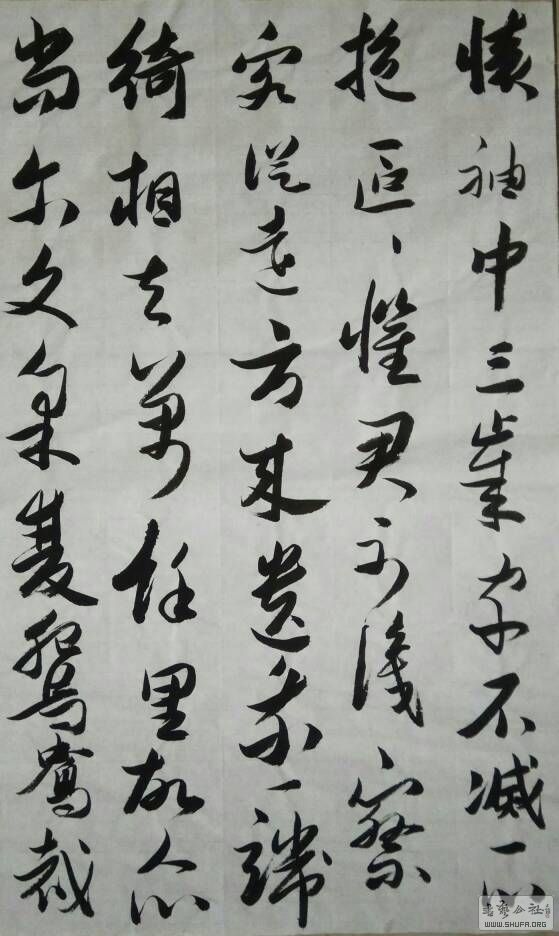 懷袖中三歲字不滅一心
抱區〻懼君不識察
客從遠方來遺我一端
綺相去萬餘里故人心
尚尔文采雙鴛鴦裁
书艺公社
WWW.SHUFA.ORG